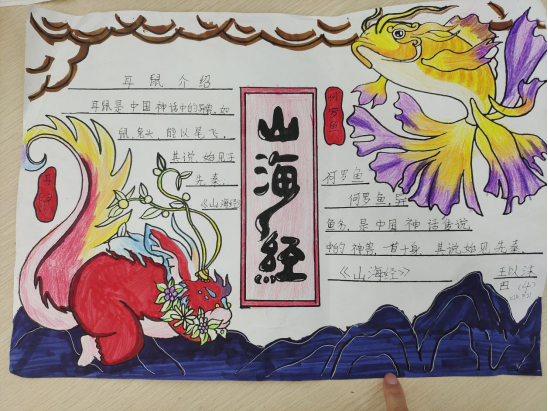 耳鼠介绍
耳鼠是中国神话中的异兽,如
鼠,兔头,能以尾飞,
其说始见于
先秦.
《山海经》
耳鼠
山海经
何罗鱼
何罗鱼
何罗鱼,
鱼名,是中国神话传说
中的神兽,一首十身,其说始见先秦.
《山海经》